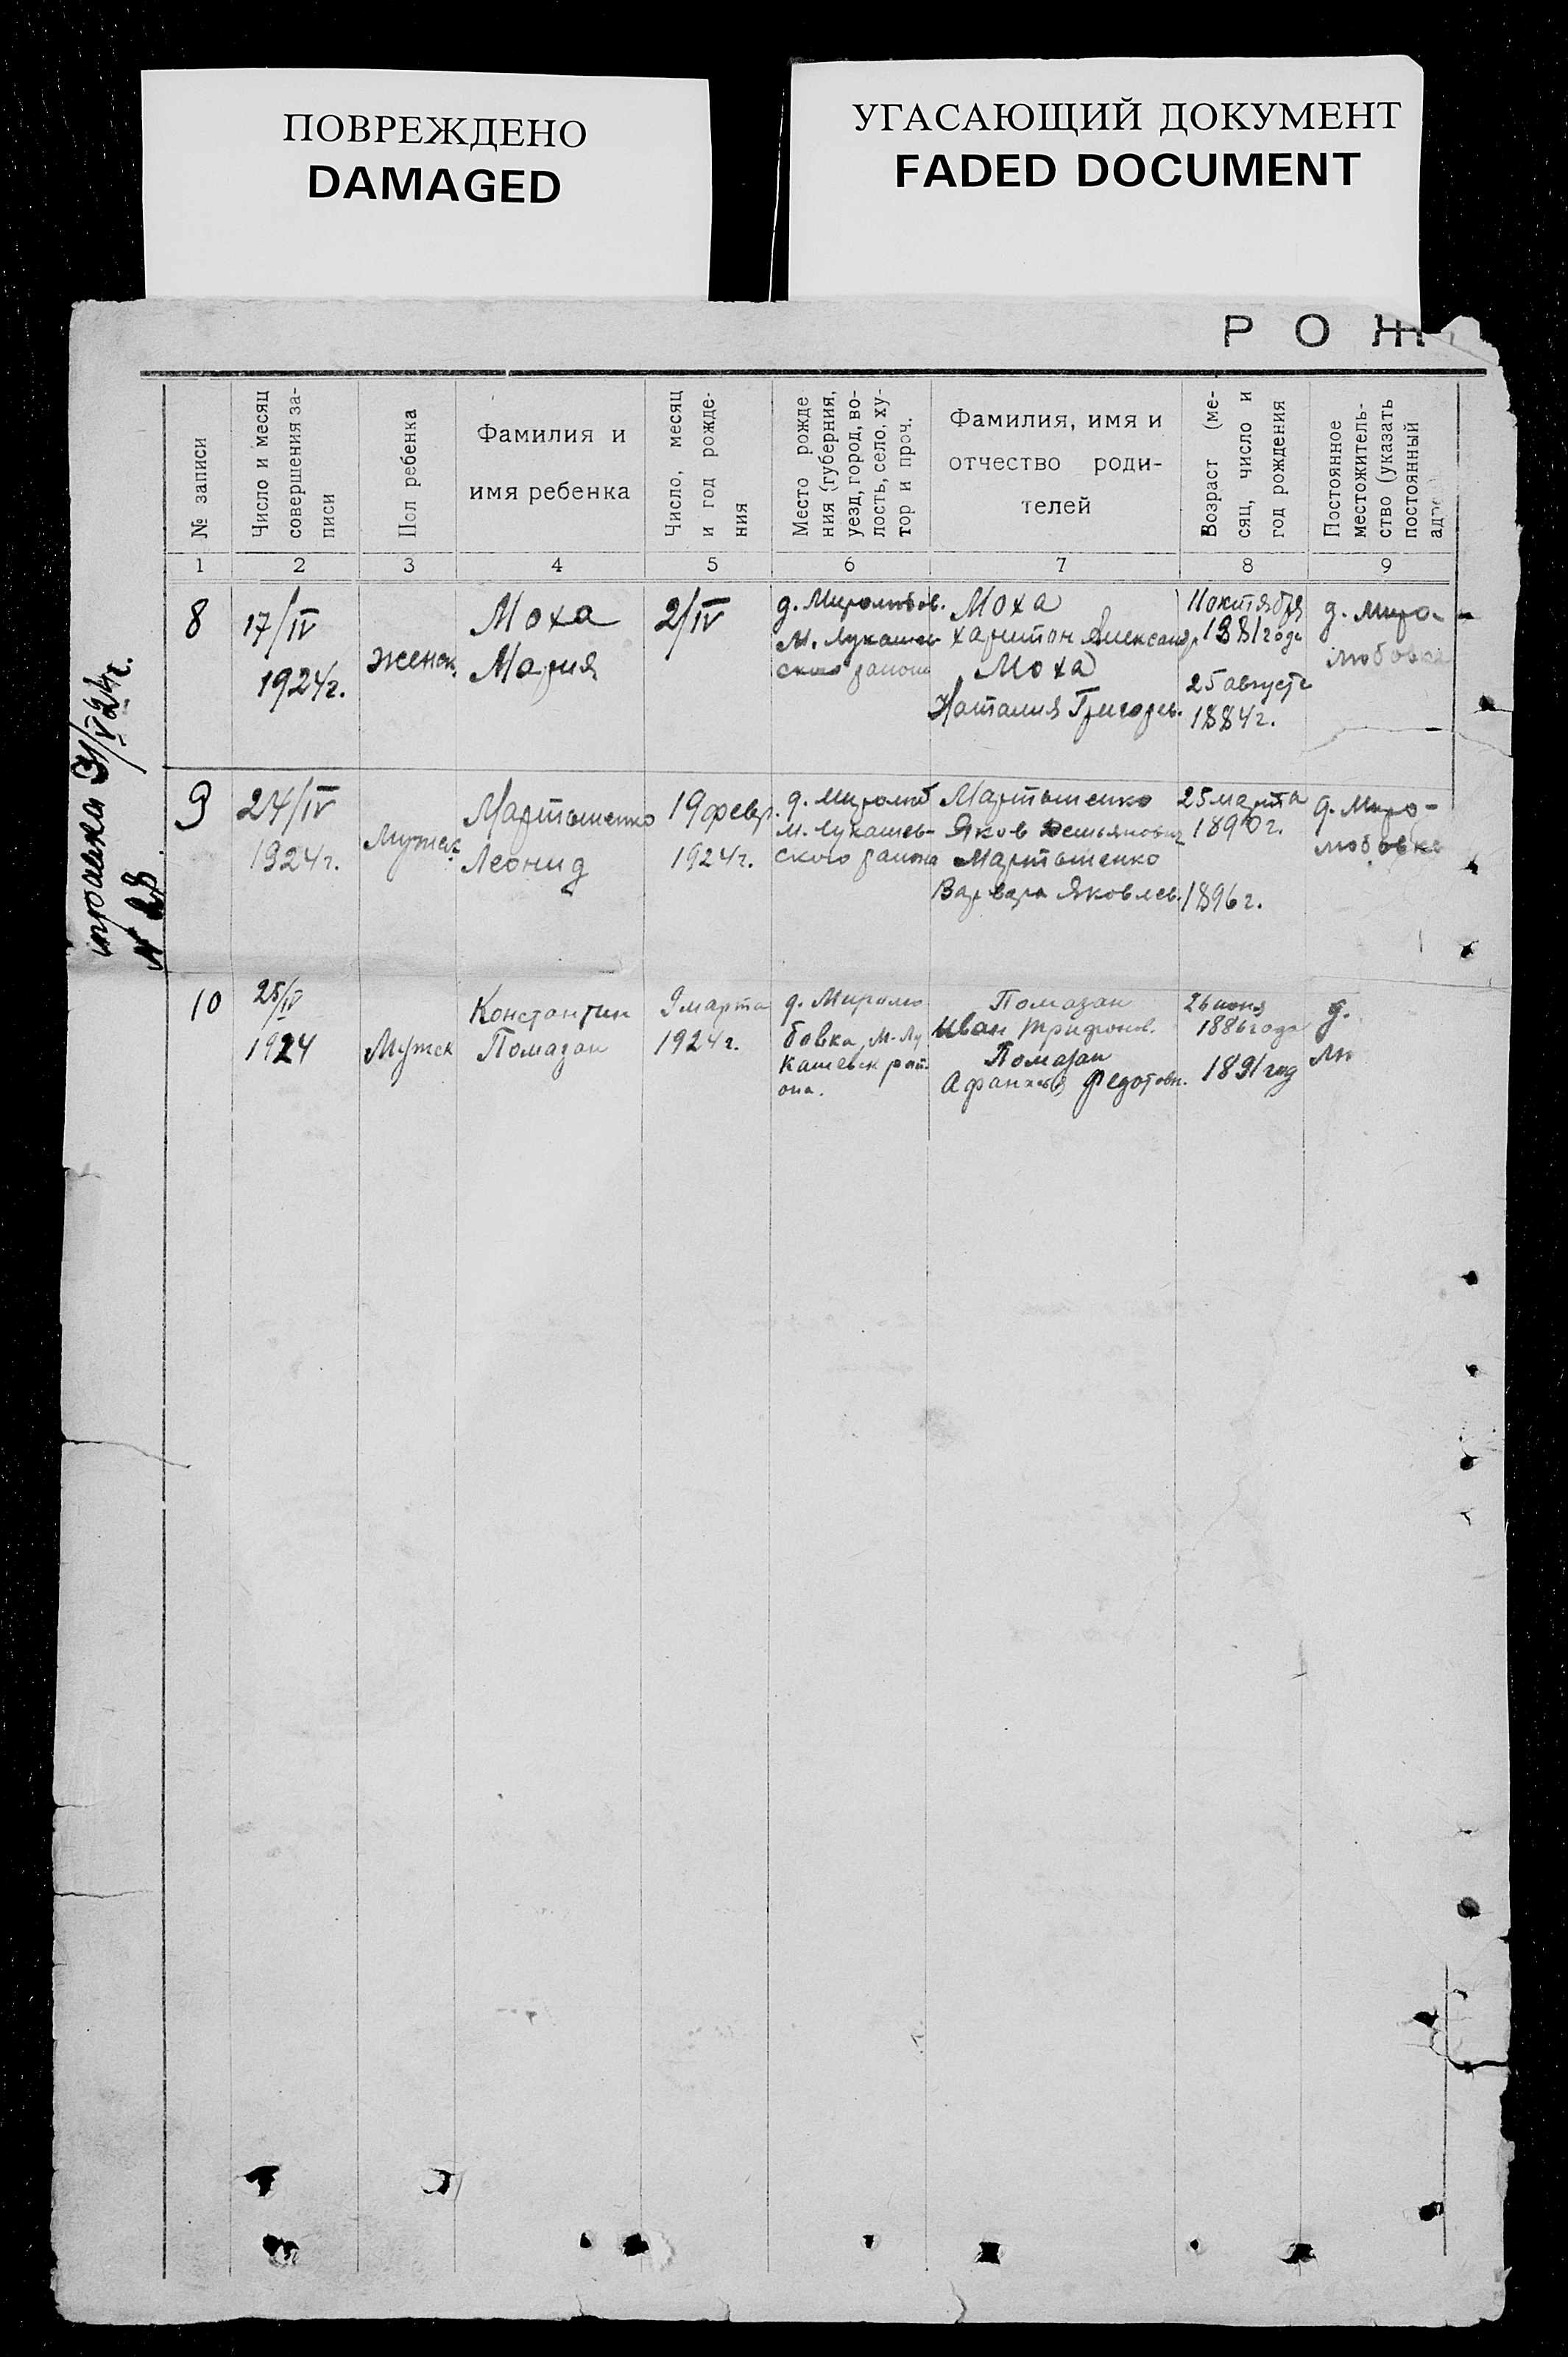 ПОВРЕЖДЕНО
DAMAGED
УГАСАЮЩИЙ ДОКУМЕНТ
FADED DOCUMENT
Р О Ж
№ записи
Число и месяц
совершения за-
писи
Пол ребенка
Фамилия и
имя ребенка
Число, месяц
и год рожде-
ния
Место рожде
ния (губерния,
уезд, город, во-
лость, село, ху-
тор и проч.
Фамилия, имя и
отчество роди-
телей
Возраст (ме-
сяц, число и
год рождения
Постоянное
местожитель-
ство (указать
постоянный
адре
1 2 3 4 5 6 7 8 9
8
17/IV
1924г.
женск.
Моха
Мария
2/IV
д. Миролюбов.
М. Лукашев
ского района
Моха
Харитон Александр
Моха
Наталия Григорьв.
11 октября
1881 года
25 августа
1884г.
д. Миро-
любовка
9
24/IV
1924г.
Мужск
Мартыненко
Леонид
19 февр.
1924г.
д. Миролюб
М. Лукашев-
ского района
Мартыненко
Яков Демьянович
Мартыненко
Варвара Яковлев.
25 марта
1890г.
1896г.
д. Миро-
любовка
10
25/IV
1924
Мужск
Константин
Помазан
9 марта
1924г.
д. Миролю
бовка, М-Лу
кашевск рай-
она.
Помазан
Иван Трифонов.
Помазан
Афанасья Федотовн.
26 июня
1886 года
1891 год
д.
Лю
31/V 24г.
N 28